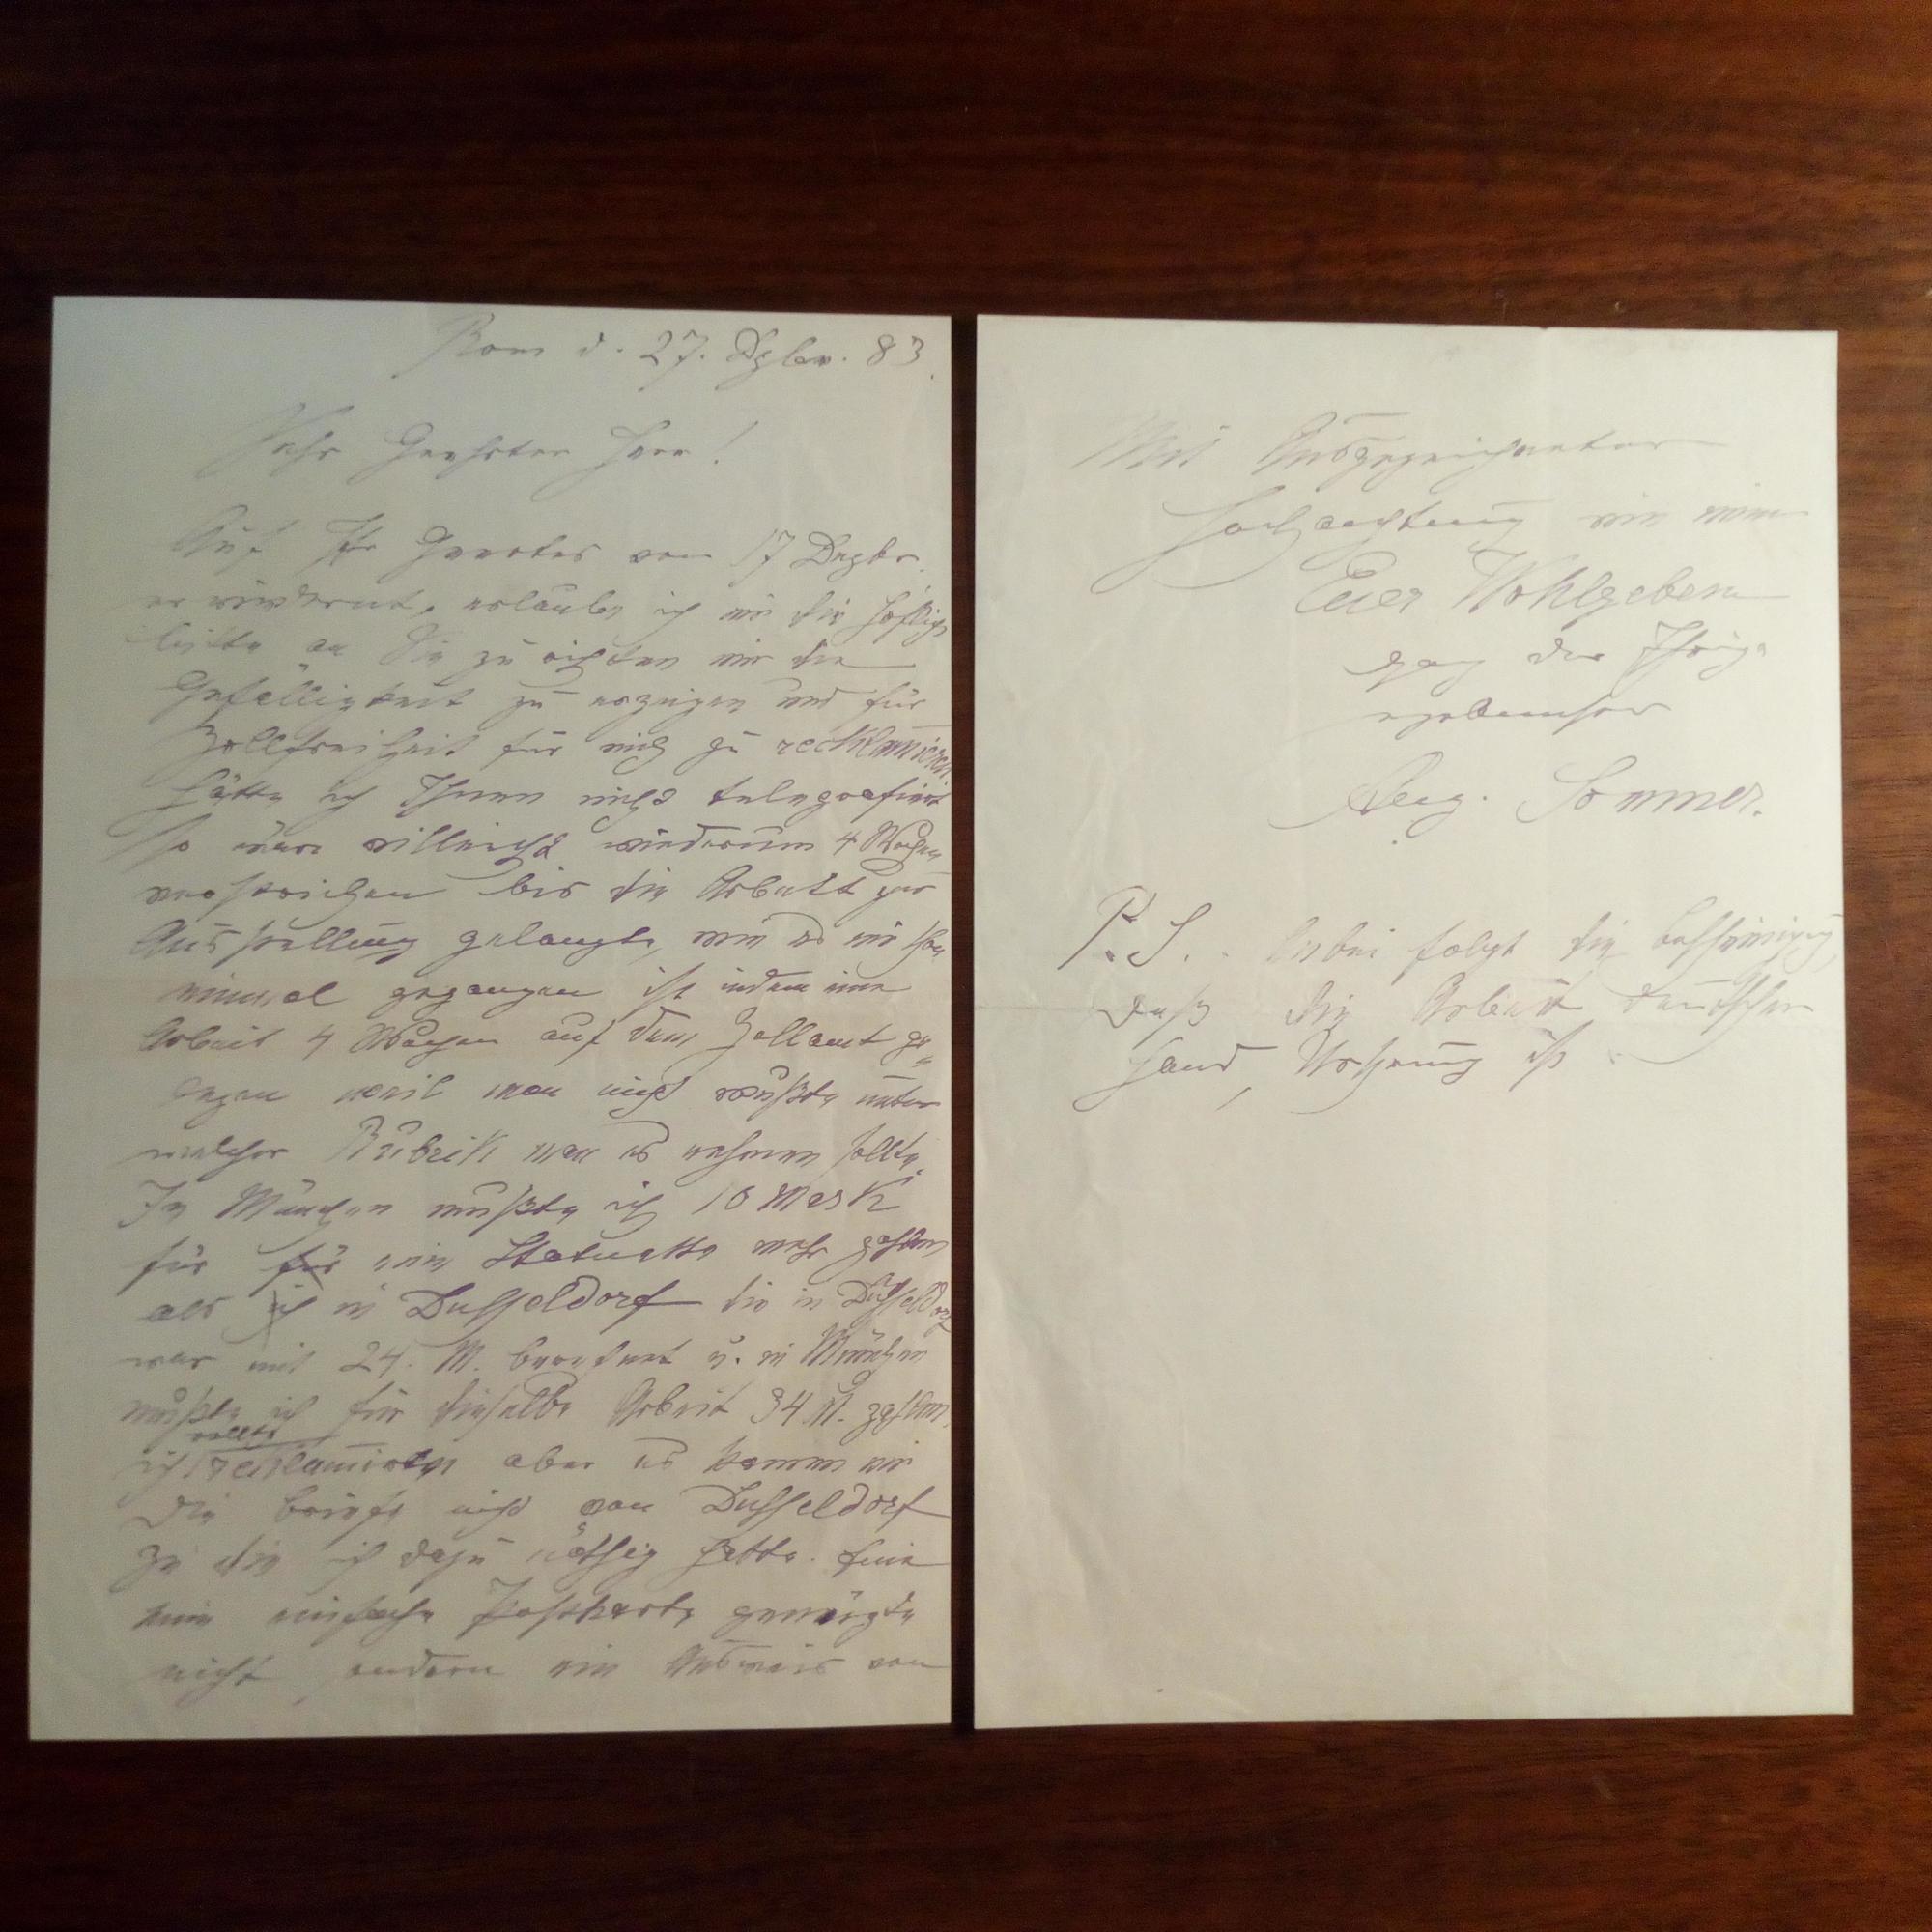 Rom d. 27. Dzbr. 83.
Sehr Geehrter Herr!
Auf Ihr Geertes vom 17 Dezbr.
erwidernt, erlaube ich mir die höfliche
bitte an Sie zu richten mir die
Gefälligkeit zu erzeigen und für
Zollfreiheit für mich zu recklamieren.
Hätte ich Ihnen nicht telegrafiert
so wäre villeicht wiederum 4 Wochen
verstrichen bis die Arbeit zur
Ausstellung gelangte, wie es mir schon
einmal gegangen ist indem eine
Arbeit 4 Wochen auf dem Zollamt ge„
legen weil man nicht wußte unter
welcher Rubrik man es nehmen sollte.
In München mußte ich 10 Mark
für für eine Statuette mehr zahlen
als ich in Dusseldorf die in Dusseldorf
war mit 24. M. berechnet u. in München
mußte ich für dieselbe Arbeit 34 M. zahlen,
wollte
ich reklamieren aber es kamen mir
die briefe nicht von Dusseldorf
zu die ich dazu nöthig hatte.
eine einfache Postkarte genügte
nicht sondern ein Ausweis von
Mit Ausgezeichneter
Hochachtung
Euer Wohlgeboren
ganz der Ihrige
ergebenster
Aug. Sommer.
P. S. : beibei folgt die bescheinigung,
daß die Arbeit deutscher
Hand, Ursprung ist